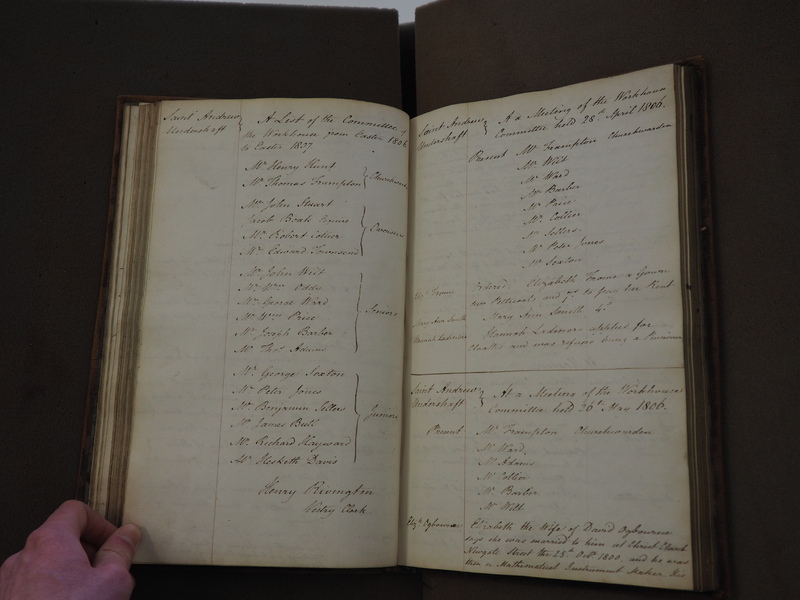 Saint Andrew Undershaft
A List of the Committee of
the Workhouse from Easter 1806
to Easter 1807
Mr. Henry Hunt
Mr. Thomas Frampton
Churchwardens
Mr. John Stuart
Jacob Boak Esquire
Mr. Robert Collier
Mr. Edward Townsend
Overseers
Mr. John Wilt
Mr. Wm. Oddy
Mr. George Ward
Mr. Wm. Price
Mr. Joseph Barber
Mr. Thos. Adams
Seniors
Mr. George Sexton
Mr. Peter Jones
Mr. Benjamin Sellers
Mr. James Bull
Mr. Richard Hayward
Mr. Hesketh Davis
Juniors
Henry Rivington
Vestry Clerk
Saint Andrew Undershaft
At a Meeting of the Workhouse
Committee held 28th April 1806.
Present Mr. Frampton Churchwarden
Mr. Wilt
Mr. Ward
Mr. Barber
Mr. Price
Mr. Collier
Mr. Sellers
Mr. Peter Jones
Mr. Sexton
Elizth. Frome
Ordered. Elizabeth Frome a Gown
two Petticoats and to pay her Rent
Mary Ann Smith
Mary Ann Smith
Hannah applies for
Cloaths and was refused being a
Saint Andrew Undershaft
At a Meeting of the Workhouse
Committee held 26th May 1806.
Present Mr. Frampton Churchwarden
Mr. Ward
Mr. Adams
Mr. Collier
Mr. Barber
Mr. Wilt
Elizth. Ogbourne
Elizabeth the Wife of David Ogbourne
says she was married to him at Christ Church
Newgate Street the 25th Octr. 1800, and he was
then a Mathematical Instrument Maker. His